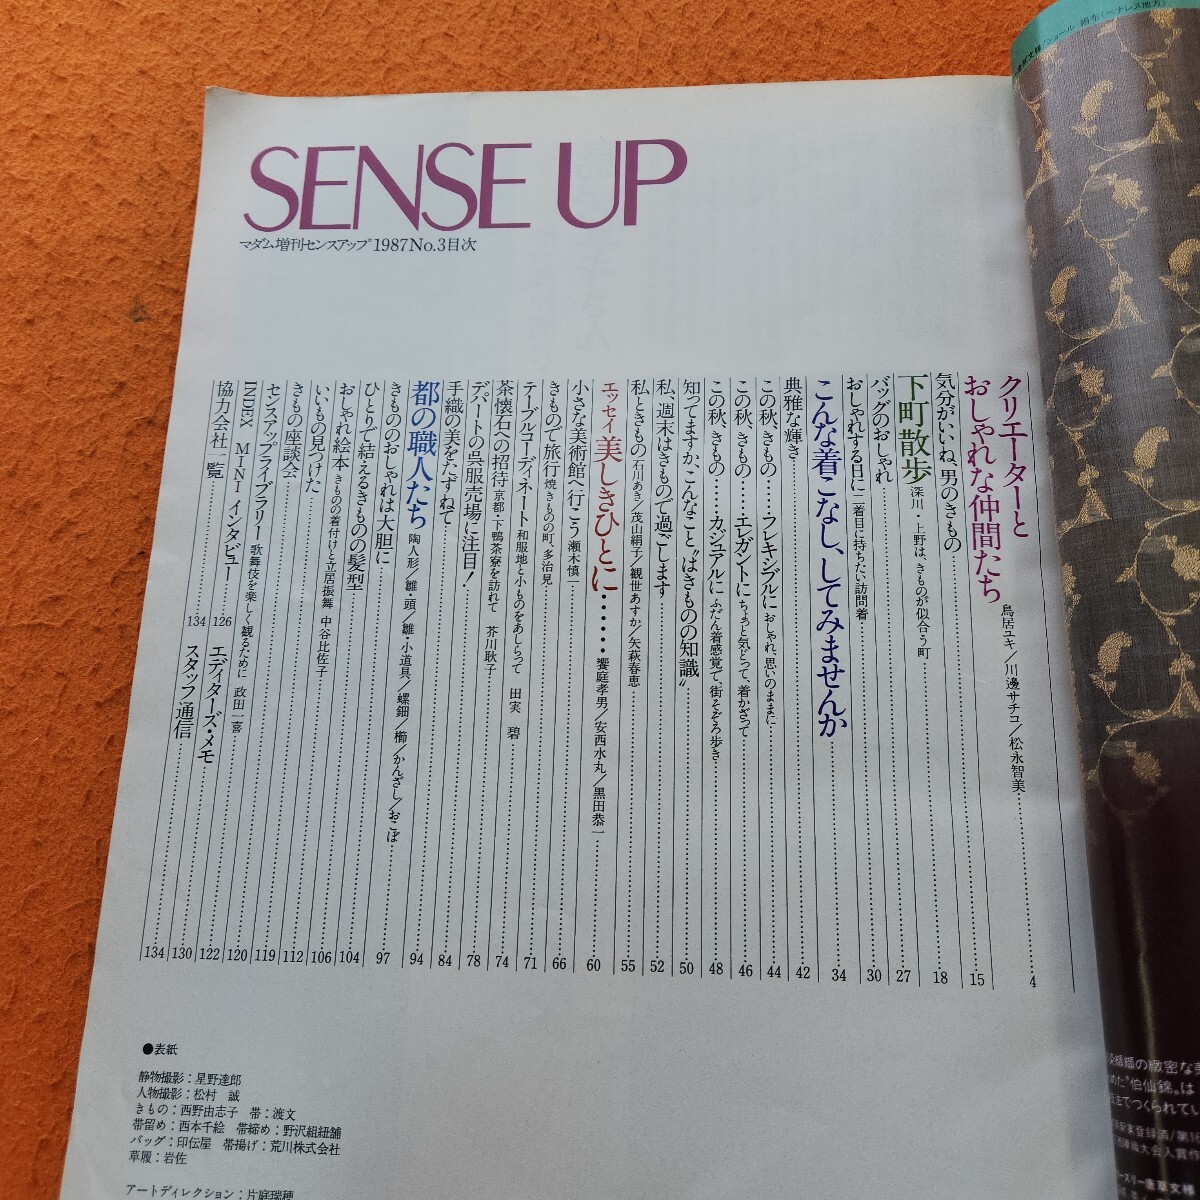 SENSE UP
マダム増刊センスアップ1987No.3目次
クリエーターと
おしゃれな仲間たち 鳥居ユキ/川邊サチコ/松永智美 4
気分がいいね、男のきもの 15
下町散歩 深川・上野は、きものが似合う町 18
バッグのおしゃれ 27
おしゃれする日に 二着目に持ちたい訪問着 30
こんな着こなし、してみませんか 34
典雅な輝き 42
この秋、きもの……フレキシブルに おしゃれ、思いのままに 44
この秋、きもの……エレガントに ちょっと気どって、着かざって 46
この秋、きもの……カジュアルに ふだん着感覚で、街そぞろ歩き 48
知ってますか、こんなこと〝はきものの知識〟 50
私、週末はきもので過ごします 52
私ときもの 石川あき/茂山絹子/観世あすか/矢萩春恵 55
エッセイ 美しきひとに…… 饗庭孝男/安西水丸/黒田恭一 60
小さな美術館へ行こう 瀬木慎一
きもので旅行 焼きものの町、多治見 66
テーブルコーディネート 和服地と小ものをあしらって 田実 碧 71
茶懐石への招待 京都・下鴨茶寮を訪れて 芥川耿子 74
デパートの呉服売場に注目! 78
手織の美をたずねて 84
都の職人たち 陶人形/雛・頭/雛・小道具/螺鈿/櫛/かんざし/おこぼ 94
きもののおしゃれは大胆に 97
ひとりで結えるきものの髪型 104
おしゃれ絵本 きものの着付けと立居振舞 中谷比佐子 106
いいもの見つけた 112
きもの座談会 119
センスアップライブラリー 歌舞伎を楽しく観るために 政田一喜 120
INDEX MINI インタビュー 126
エディターズ・メモ 122
協力会社一覧 134
スタッフ通信 130
134
●表紙
静物撮影：星野達郎
人物撮影：松村 誠
きもの：西野由志子 帯：渡文
帯留め：西本千絵 帯締め：野沢組紐舗
バッグ：印伝屋 帯揚げ：荒川株式会社
草履：岩佐
アートディレクション：片庭瑞穂